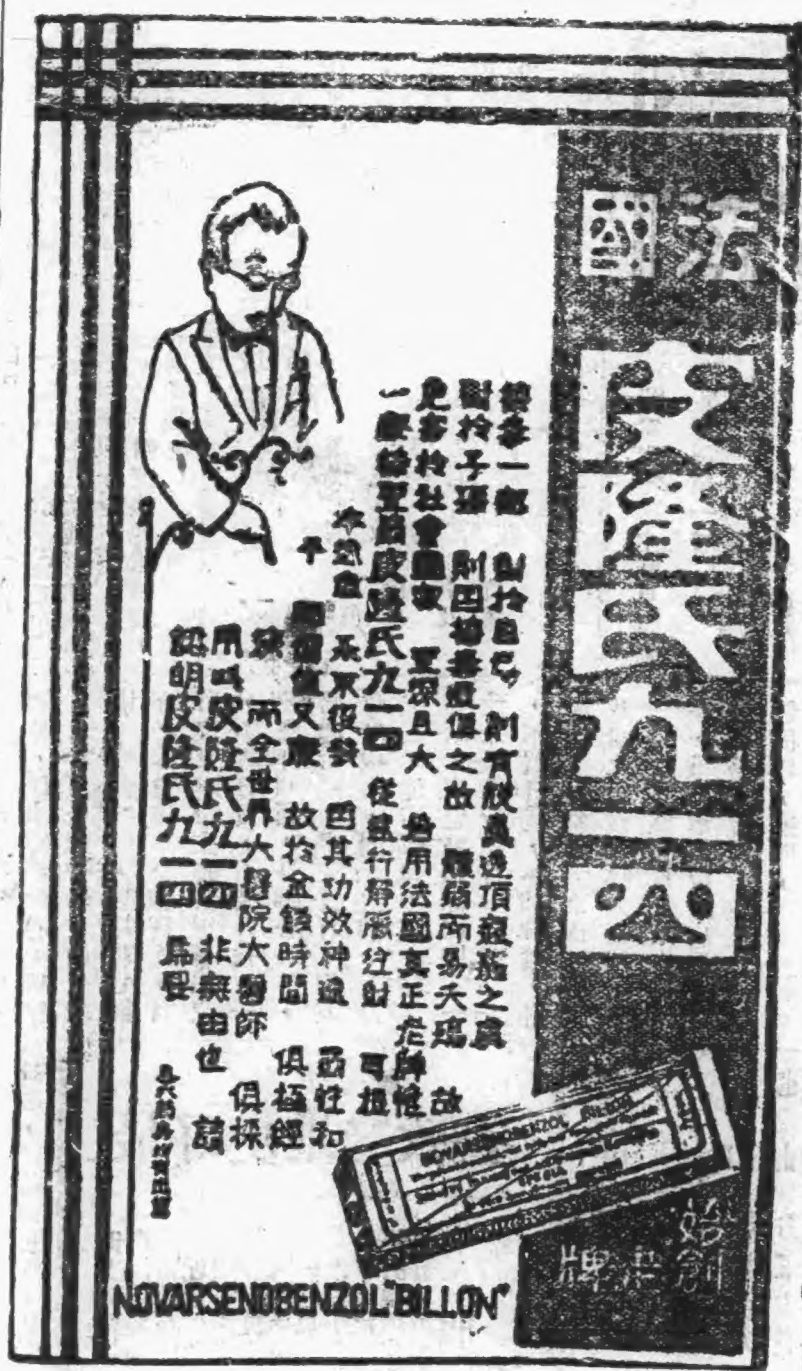 法國
皮隆氏九一四
始創
老牌
梅毒一症 對於自己 則有脫鼻透頂之虞
對於子孫 則因梅毒遺傳之故 體弱而易夭殤 故
危害於社會國家 至深且大 若用法國真正老牌惟
一靈藥皮隆氏九一四 從速行靜脈注射 可担
永不復發 因其功效神速 而性和
平 價值又廉 故於金錢時間 俱極經
濟 而全世界大醫院大醫師 俱採
用此皮隆氏九一四 非無由也 請
認明皮隆氏九一四 爲要
各大藥房均有出售
NOVARSENOBENZOL BILLON
NOVARSENOBENZOL "BILLON"